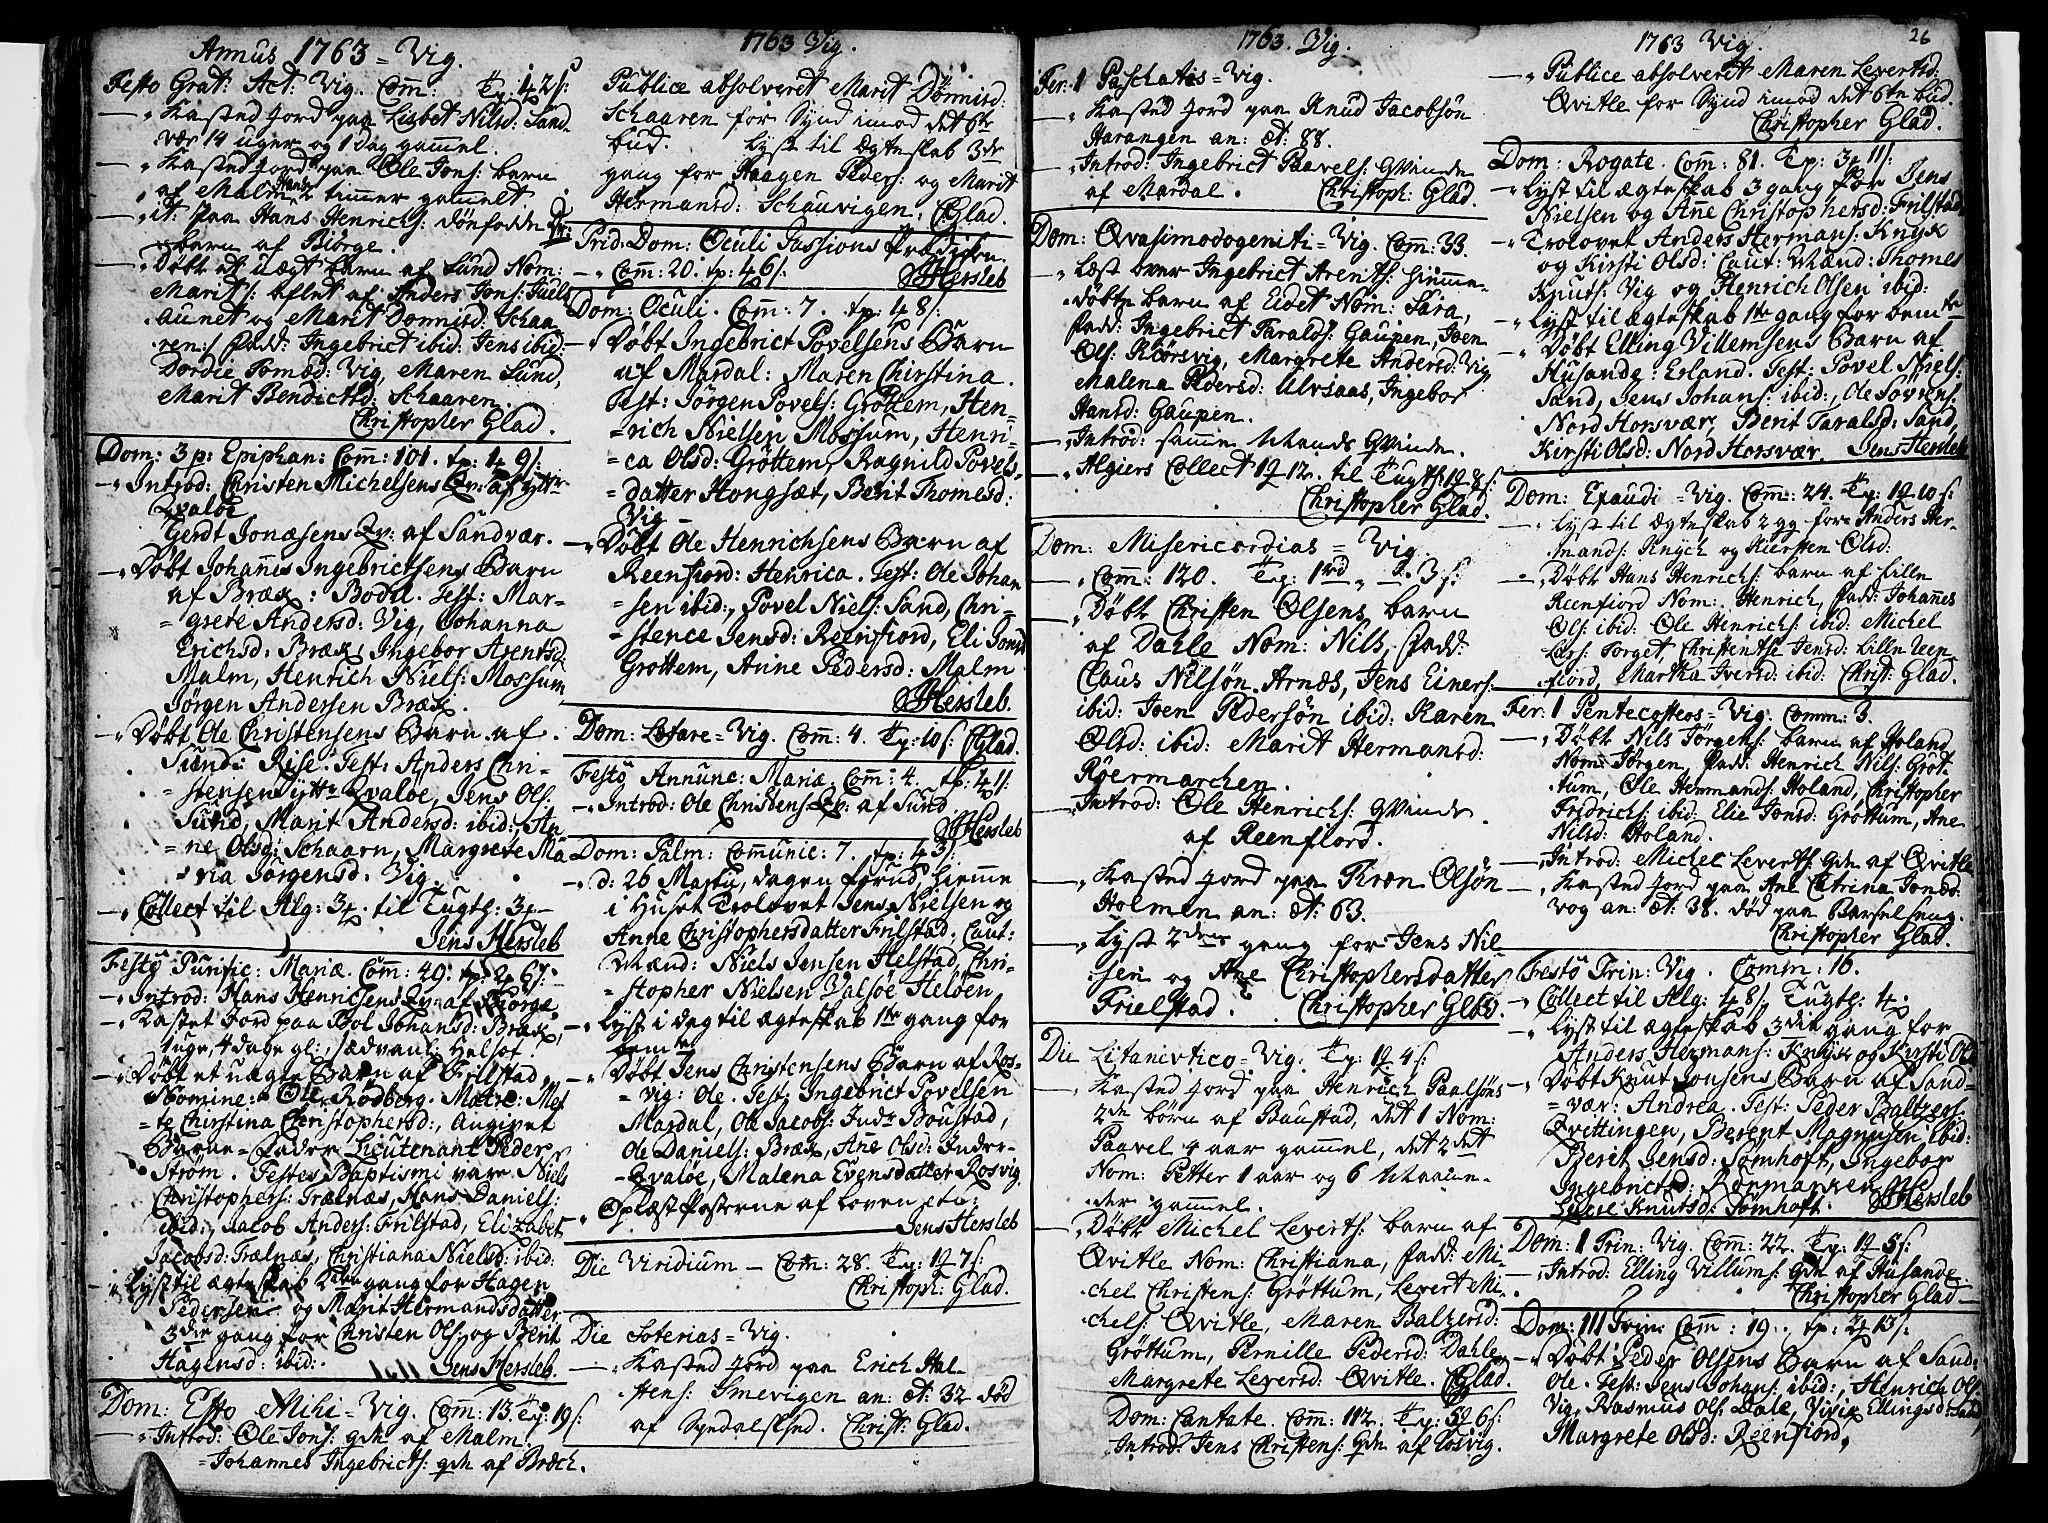 Annus 1763 = Vig.
Festo Grat: Act: Vig. Com̄: Tp: 42 s:
—„ Kasted Jord paa Lisbet Nilsd: Sand-
vær 14 uger og 1 Dag gammel.
—„ Kasted Jord paa Ole Jons: barn
af Malm timmer gammelt
—„ it: paa Hans Henrichs: dønfødde
barn af Biørge.
—„ Døbt et uægt barn af Sund Nom:
Marit/: aflet af Anders Jons: Juels
aunet og Marit Dønnisd: Schaa
ren:/ fadd: Ingebrict ibid: Jens ibid:
Dordie Tomæd: Vig, Maren Sund,
Marit Bendictsd: Schaaren.
Christopher Glad.
Dom: 3 p: Epiphan: Com̄: 101. tp: 9 s:
—„ Introd: Christen Michelsens Qv: af yttr
Qvaløe
Gerdt Jonæsens Qv: af Sandvær.
—„ Døbt Johan̄is Ingebrictsens Barn
af Bræx: Bodil. Test: Mar-
= grete Andersd: Vig, Johanna
Erichsd: Bræx, Ingebor Arentsd
Malm, Henrich Niels: Mossum
Jørgen Andersen Bræx.
—„ Døbt Ole Christensens Barn af
Sund: Rise. Test: Anders Chri-
= stensen ytt: Qvaløe, Jens Ols:
Sund, Marit Andersd: ibid:, An
= ne Olsd: Schaarn, Margrete Ma
= ria Jørgensd: Vig.
—„ Collect til Alg: 3 til Tugth: 3
Jens Hersleb
Festo Purific: Mariæ. Com̄: 49. tp: 2 6 s:
—„ Introd: Hans Henricsens Qv: af Biørge.
—„ Kastet Jord paa Bol Johansd: Bræx,
1 uge, 4 dage gl:, sædvanl: Helsot.
—„ Døbt et uægte Barn af Frilstad,
Nomine: Ole Rødberg. Matre: Met
= te Chirstina Christophersd:, Angivet
Barne-Fader Lieutenant Peder
Strøm. Testes Baptismi vare Niels
Christophers: Trælnæs, Hans Daniels:
ibid:, Jacob Anders: Frilstad, Elizabet
Jacobsd: Trælnæs, Christiana Nielsd: ibid:
—„ Lyst til ægteskab gang for Hagen
Pedersen og Marit Hermandsdatter
3die gang for Christen Ols: og Berit
Hagensd: ibid:.
Jens Hersleb.
Dom: Esto Mihi = Vig. Com̄: 13. Tp: 19 s:
—„ Introd: Ole Jons: qde af Malm.
= Johannes Ingebricts: qde af Bræch.
1763 Vig.
Publice absolveret Marit Dønnisd:
Schaaren for Synd imod det 6te
bud. Lyst til Ægteskab 3de
gang for Haagen Peders: og Marit
Hermansd: Schauvigen. CGlad.
Prid: Dom: Oculi Passions Prædiken.
—„ Com̄: 20. tp: 46 s:
JHersleb
Dom: Oculi. Com̄: 7. tp: 48 s:
—„ Døbt Ingebrict Povelsens Barn
af Mardal: Maren Chirstina.
Test: Jørgen Povels: Grøttem, Hen-
= rich Nielsen Mossum, Henri-
= ca Olsd: Grøttem, Ragnild Povels-
= datter Hongsæt, Berit Thomesd:
Vig
—„ Døbt Ole Henrichsens Barn af
Reenfiord: Henrica. Test: Ole Johan
= sen ibid:, Povel Niels: Sand, Chri-
= stence Jensd: Reenfiord, Eli Jonsd
Grøttem, Anne Pedersd: Malm
JHersleb.
Dom: Letare = Vig. Com̄: 4. Tp: 10 s: CGlad.
Festo Annunc: Mariæ. Com̄: 4. tp: 21 s:
—„ Introd: Ole Christens: Qv: af Sund.
JHersleb
Dom: Palm: Communic: 7. tp: 43 s:
—„ d: 26 Martii, dagen forud, hiemme
i Huset Trolovet Jens Nielsen og
Anne Christophersdatter Frilstad, Caut:
Mænd: Niels Jensen Helstad, Chri-
= stopher Nielsen Valsøe Heløen
—„ Lyst i dag til ægteskab 1te gang for
bemte
—„ Døbt Jens Christensens Barn af Ros-
= Vig: Ole. Test: Ingebrict Povelsen
Mardal, Ole Jacobs: Indr Boustad,
Ole Daniels: Bræx, Ane Olsd: Inder-
= Qvaløe, Malena Evensdatter Rosvig.
—„ Oplæst Posterne af Loven etc:
Jens Hersleb
Die Viridium — Com: 28. Tp: 12 7 s:
Christoph: Glad.
Die Soterias = Vig.
—„ Kasted Jord paa Erich Hal-
stens: Smevigen an: æt: 32 død
af Syndalskad. Christ: Glad.
1763. Vig.
Fer: 1 Paschatis = Vig.
—„ Kasted Jord paa Knud Jacobsøn
Harangen an: æt: 88.
—„ Introd: Ingebrict Paavels: Qvinde
af Mardal. Christoph: Glad.
Dom: Qvasimodogeniti = Vig. Com̄: 33.
—„ Læst over Ingebrict Arents: hiemme-
døbte barn af Eidet Nom: Sara,
fadd: Ingebrict Taralds: Gaupen, Joen
Ols: Kiørsvig, Margrete Andersd: Vig
Malena Pedersd: Ulvsaas, Ingebor
Hansd: Gaupen.
—„ Introd: samme Mands Qvinde.
—„ Algiers Collect 12 12. til Tugth: 12 8 s:
Christopher Glad.
Dom: Misericordias = Vig.
—„ Com̄: 120. Tp: 1rd „ 3 s:
—„ Døbt Christen Olsens barn
af Dahle Nom: Nils, fadd:
Claus Nilsøn Arnæs, Jens Einers:
ibid: Joen Pedersøn ibid: Karen
Olsd: ibid: Marit Hermansd:
Røermarchen.
—„ Introd: Ole Henrichs: Qvinde
af Reenfiord.
—„ Kasted Jord paa Kræn Olsøn
Holmen an: æt: 63.
—„ Lyst 2den gang for Jens Nil-
sen og Ane Christophersdatter
Frielstad. Christopher Glad.
Die Litanevtico = Vig: Tp: 12 4 s:
—„ Kasted Jord paa Henrich Paalsøns
2de børn af Baustad, det 1 Nom:
Paavel 4 aar gammel, det 2det
Nom: Petter 1 aar og 6 Maane-
der gammel.
—„ Døbt Michel Leverts: barn af
Qvitle Nom: Christiana, fadd: Mi-
chel Christens: Grøttum, Levert Mi-
chels: Qvitle, Maren Baltzersd:
Grøttum, Pernille Pedersd: Dahle
Margrete Leversd: Qvitle. CGlad.
Dom: Cantate. Com̄: 112. Tp: 52 6 s:
Introd: Jens Christens: Qde af Rosvig.
1763 Vig.
26
—„ Publice absolveret Maren Levertsd:
Qvitle for Synd imod det 6te bud.
Christopher Glad.
Dom: Rogate. Com̄: 81. Tp: 3 11 s:
—„ Lyst til ægteskab 3 gang for Jens
Nielsen og An̄e Christophersd: Frilstad
—„ Trolovet Anders Hermans: Knyx
og Kirsti Olsd: Caut: Mænd: Thomes
Knuts: Vig og Henrich Olsen ibid:
—„ Lyst til ægteskab 1te gang for bemte
—„ Døbt Elling Villemsens Barn af
Husande: Erland. Test: Povel Niels:
Sand, Jens Johans: ibid:, Ole Sørens:
Nord Horsvær, Berit Taralsd: Sand,
Kirsti Olsd: Nord Horsvær. Jens Hersleb
Dom: Exaudi = Vig. Com̄: 24. Tp: 12 10 s:
—„ Lyst til Ægteskab 2 gg for Anders Her-
mands: Knych og Kiersten Olsd:
—„ Døbt Hans Henrichs: barn af Lille
Reenfiord Nom: Henrich, fadd: Johan̄es
Ols: ibid: Ole Hinrichs: ibid: Michel
Lars: Torget, Christentse Jensd: Lille Reen
fiord, Martha Iversd: ibid: Christ: Glad.
Fer: 1 Pentecosteos = Vig. Comm: 3.
—„ Døbt Nils Jørgens: barn af Holand
Nom: Jørgen, fadd: Henrich Nils: Grøt
tum, Ole Hemmands: Holand, Christopher
Fridrichs: ibid: Elie Jonsd: Grøttum, Ane
Nilsd: Holand.
—„ Introd: Michel Leverts: Qde af Qvitle
—„ Kasted Jord paa Ane Catrina Jonsd:
Vog an: æt: 38. død paa Barselseng.
Christopher Glad.
Festo Trin: Vig. Comm: 16.
—„ Collect til Alg: 48 s, Tugth: 4
—„ Lyst til ægteskab 3die gang for
Anders Hermans: Knyx og Kirsti Olsd
—„ Døbt Knut Jonsens Barn af Sand-
= vær: Andrea. Test: Peder Baltzers:
Qvittingen, Berent Magnusen ibid:
Berit Jensd: Sømhoft, Ingebor
Ingebrictsd: Rørmarken
Lucie Knutsd: Sømhoft. JHersleb
Dom: 1 Trin: Vig: Com̄: 22. Tp: 12 5 s:
—„ Introd: Elling Villums: Qde af Husande.
Christopher Glad —
Dom: III Trin: Com̄: 19. tp: 2 13 s:
—„ Døbt Peder Olsens Barn af Sand:
Ole. Test: Jens Johans: ibid:, Henrich Ols:
Vig, Rasmus Ols: Dale, Vivix Ellingsd: Sand
Margrete Olsd: Reenfiord,